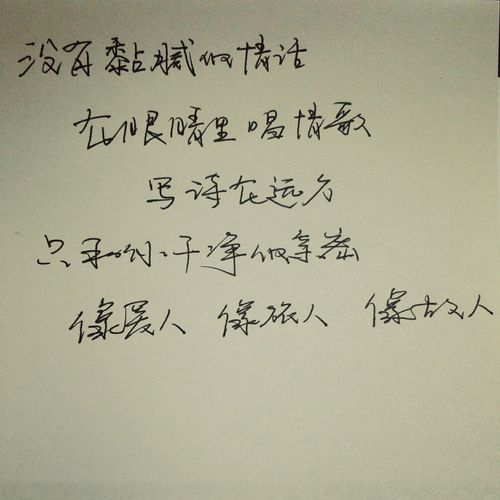 没有黏腻的情话
在眼睛里唱情歌
写诗在远方
只干净的
像爱人 像旅人 像故人